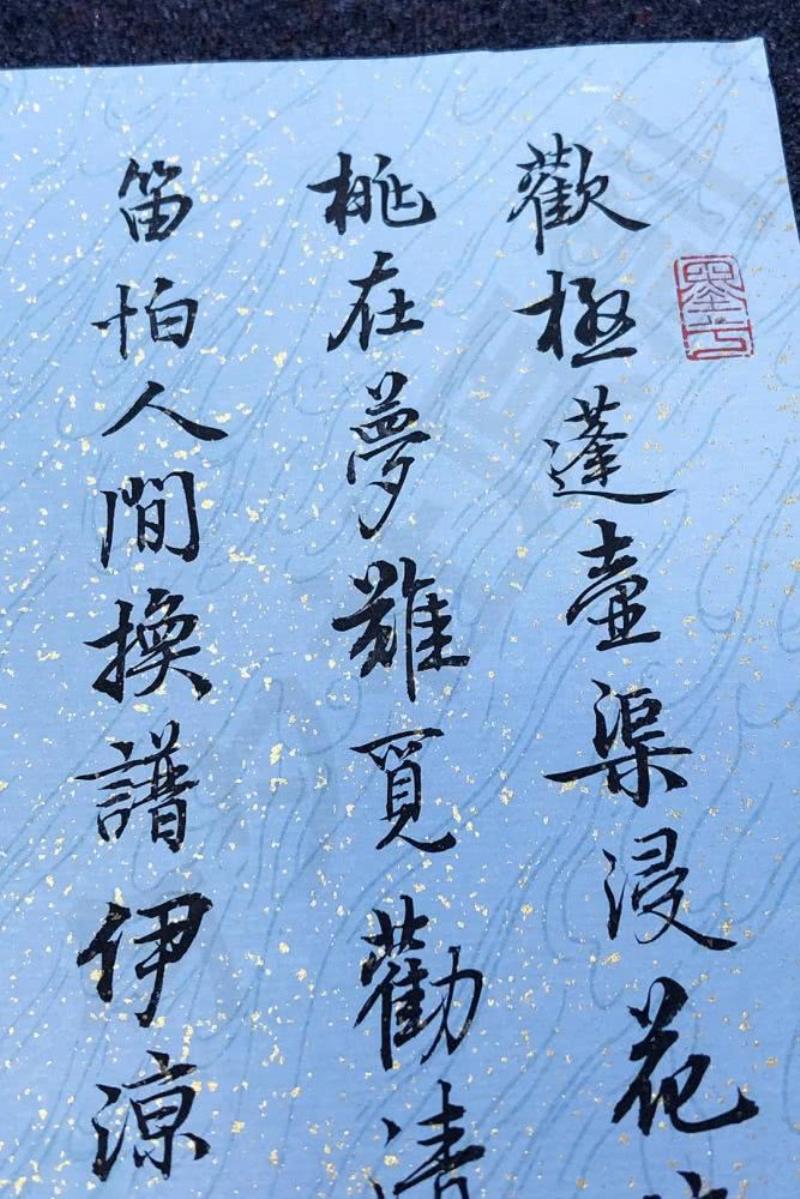 歡極蓬壺蕖浸花
桃在夢難覓勸清
笛怕人間換譜伊涼